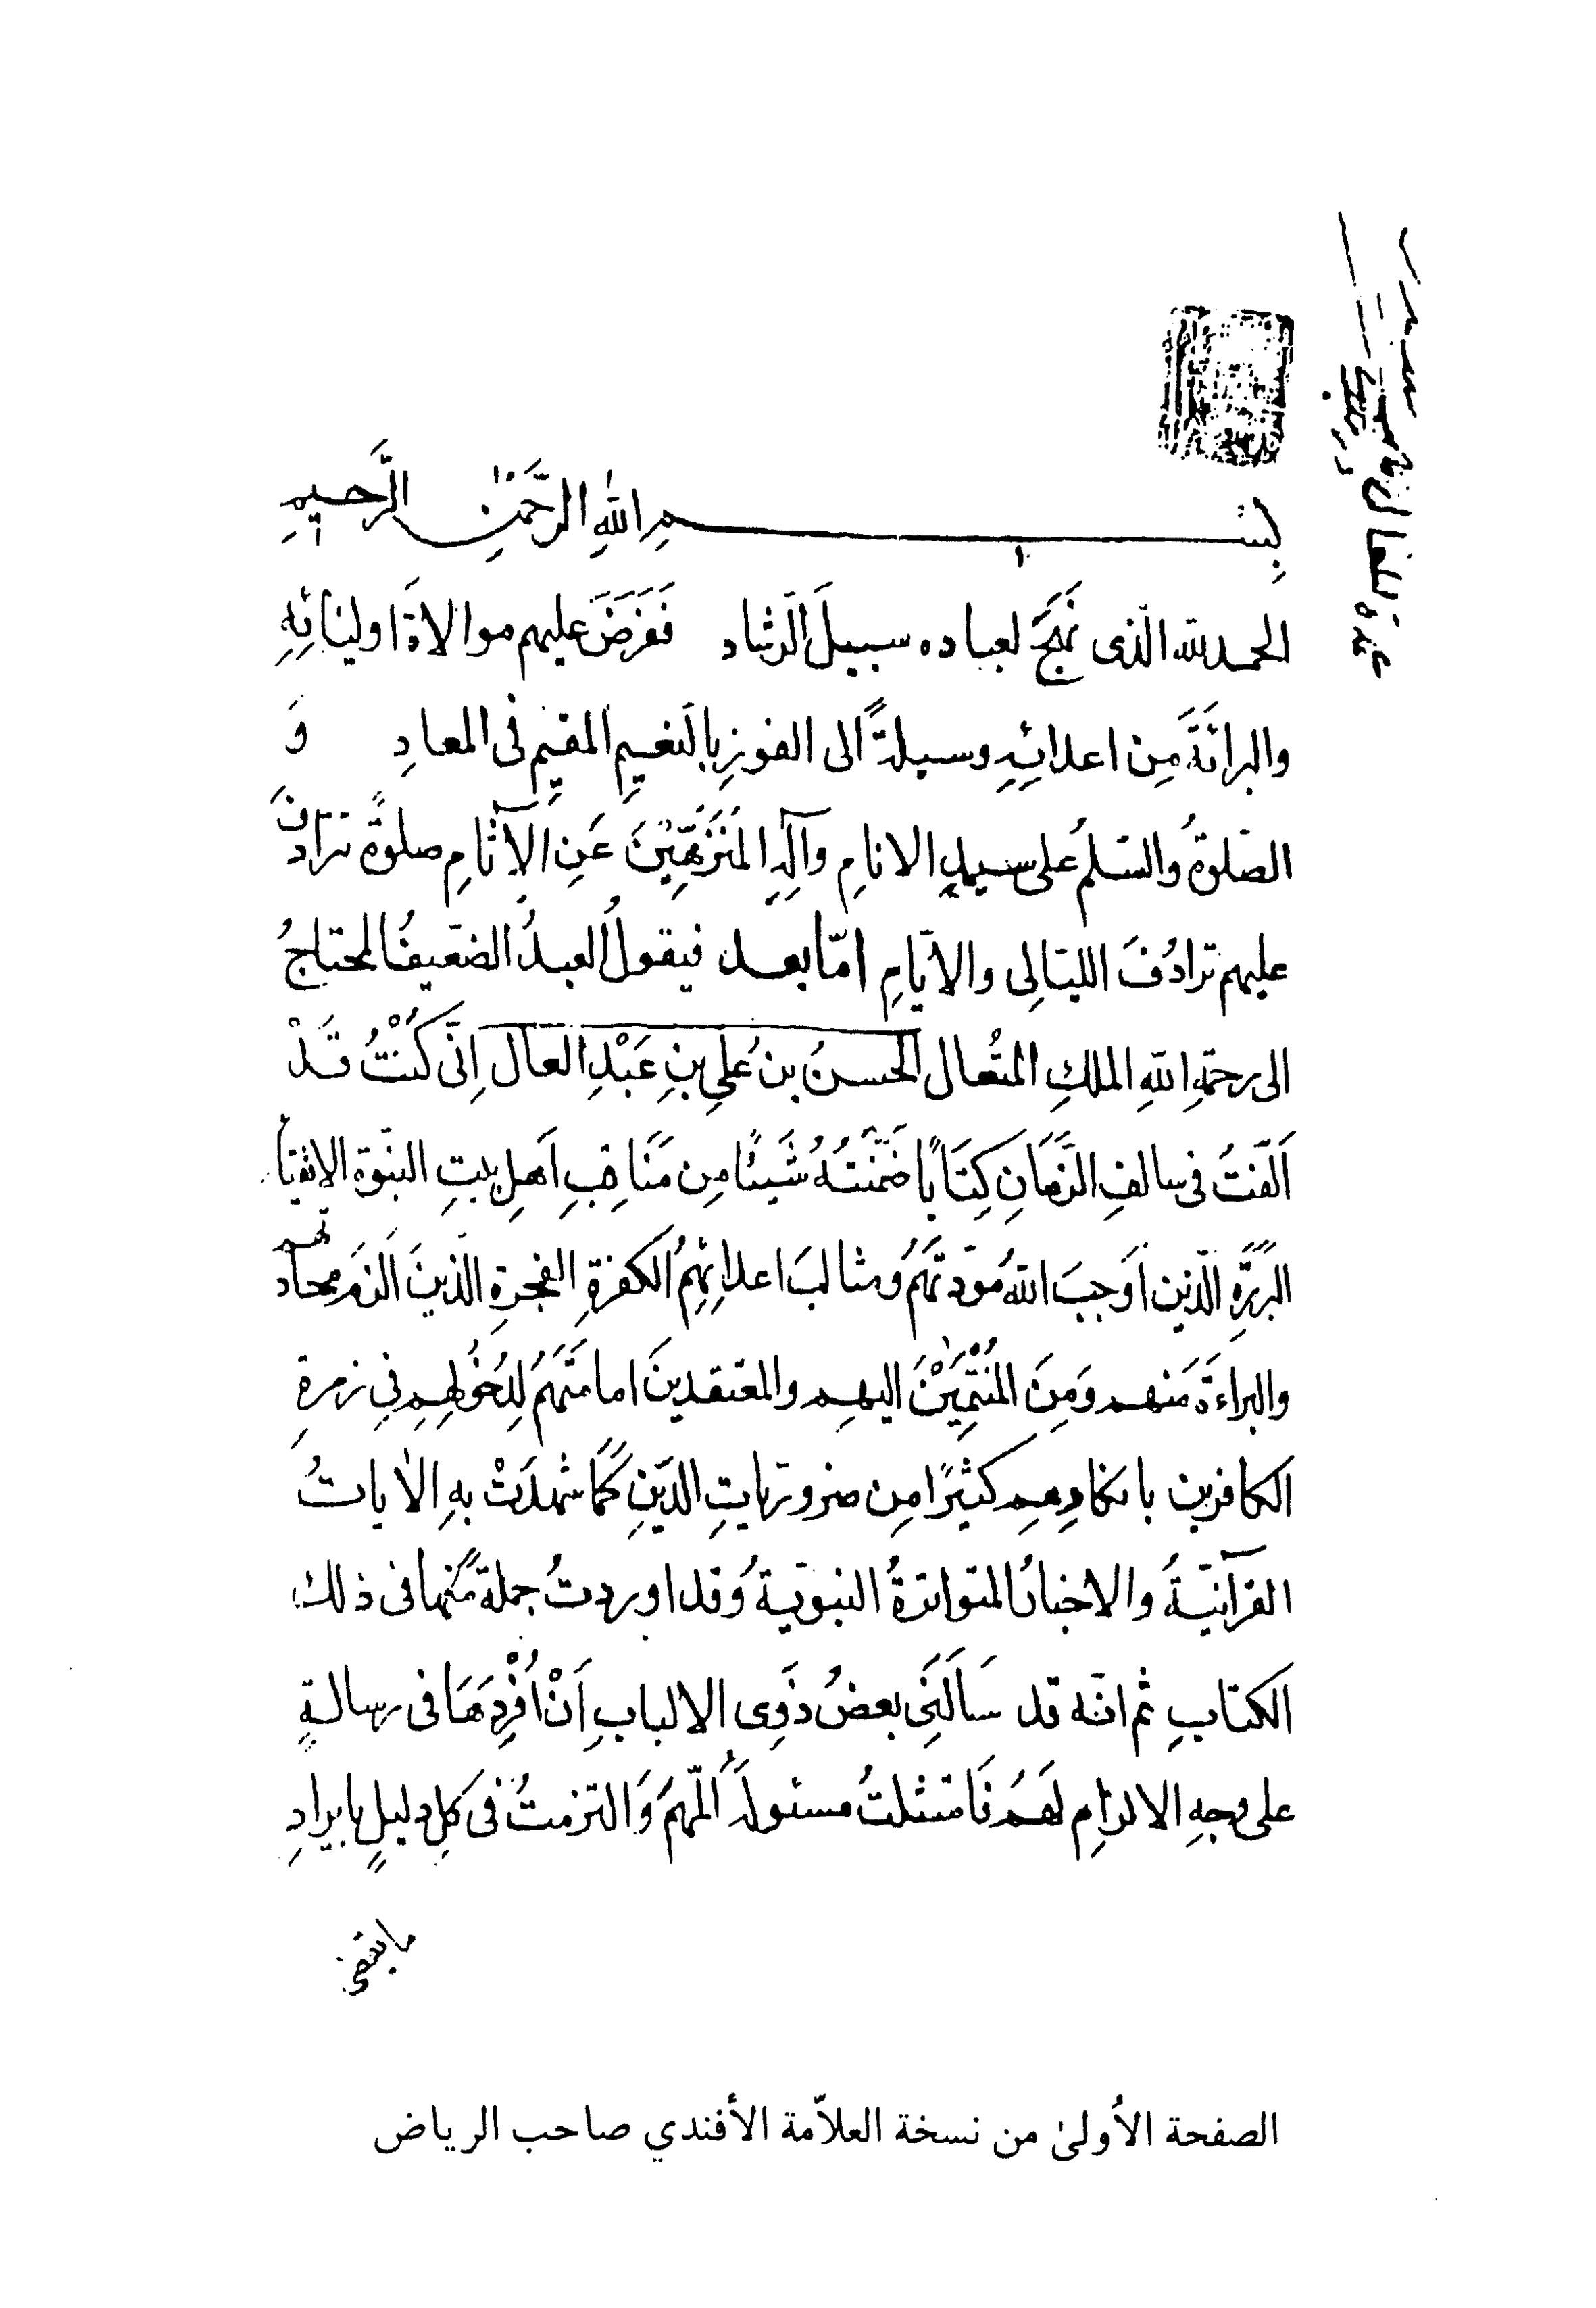 بِسْمِ اللهِ الرَّحْمٰنِ الرَّحيمِ
الحمد لله الّذى نَهَجَ لعباده سبيلَ الرَّشاد فَفَرَضَ عليهم موالاةَ اوليَائِهِ
والبرائَةَ مِن اعدائِهِ وسيلةً الى الفوزِ بالنعيمِ المقيمِ فى المعادِ وَ
الصّلوةُ والسّلمُ على سيدِ الانامِ وآلِهِ المُنَزَّهِيْنَ عَنِ الآثامِ صلوةً تترادفُ
عليهم ترادُفَ الليَالِى والايّامِ امّا بعد فيقولُ العبدُ الضعيفُ المحتاجُ
الى رحمةِ اللهِ الملكِ المتُعال الحسنُ بن علي بنِ عَبْدِ العال اِنّى كُنْتُ قَدْ
اَلّفتُ فى سالفِ الزَّمَانِ كِتَابًا ضَمَّنتُهُ شَيئًا مِن مَنَاقبِ اَهلِ بيتِ النبّوة الاتقيَا
البرَرَةِ الّذين اَوجبَ اللهُ مَودّتَهُم ومثالبَ اعدائِهِمُ الكفرةِ الفجرةِ الّذينَ اَلزمَ محادّتهم
والبراءةَ منهم وَمِنَ المُنْتَمِيْنَ اليهم والمعتقدينَ امامتَهم لِدُخُولِهِم فِى زمرةِ
الكافرين بانكارِهِم كثيرًا مِن ضروريّاتِ الدّينِ كَمَا شهدَتْ بهِ الاٰياتُ
القرآنيّةُ والاخبارُ المتواترةُ النبويّةُ وقد اوردتُ جملةً منها فى ذلك
الكتابِ ثم انّه قد سَاَلَنِى بعضُ ذَوِى الالبابِ اَنْ اُفْرِدَهَا فى رسالةٍ
على وجهِ الالزامِ لهم فَامتثلتُ مسئولَهُ المّهمَ وَالتزمتُ فى كلِ دليلٍ بايرادِ
الصفحة الأُولىٰ من نسخة العلاّمة الأفندي صاحب الرياض